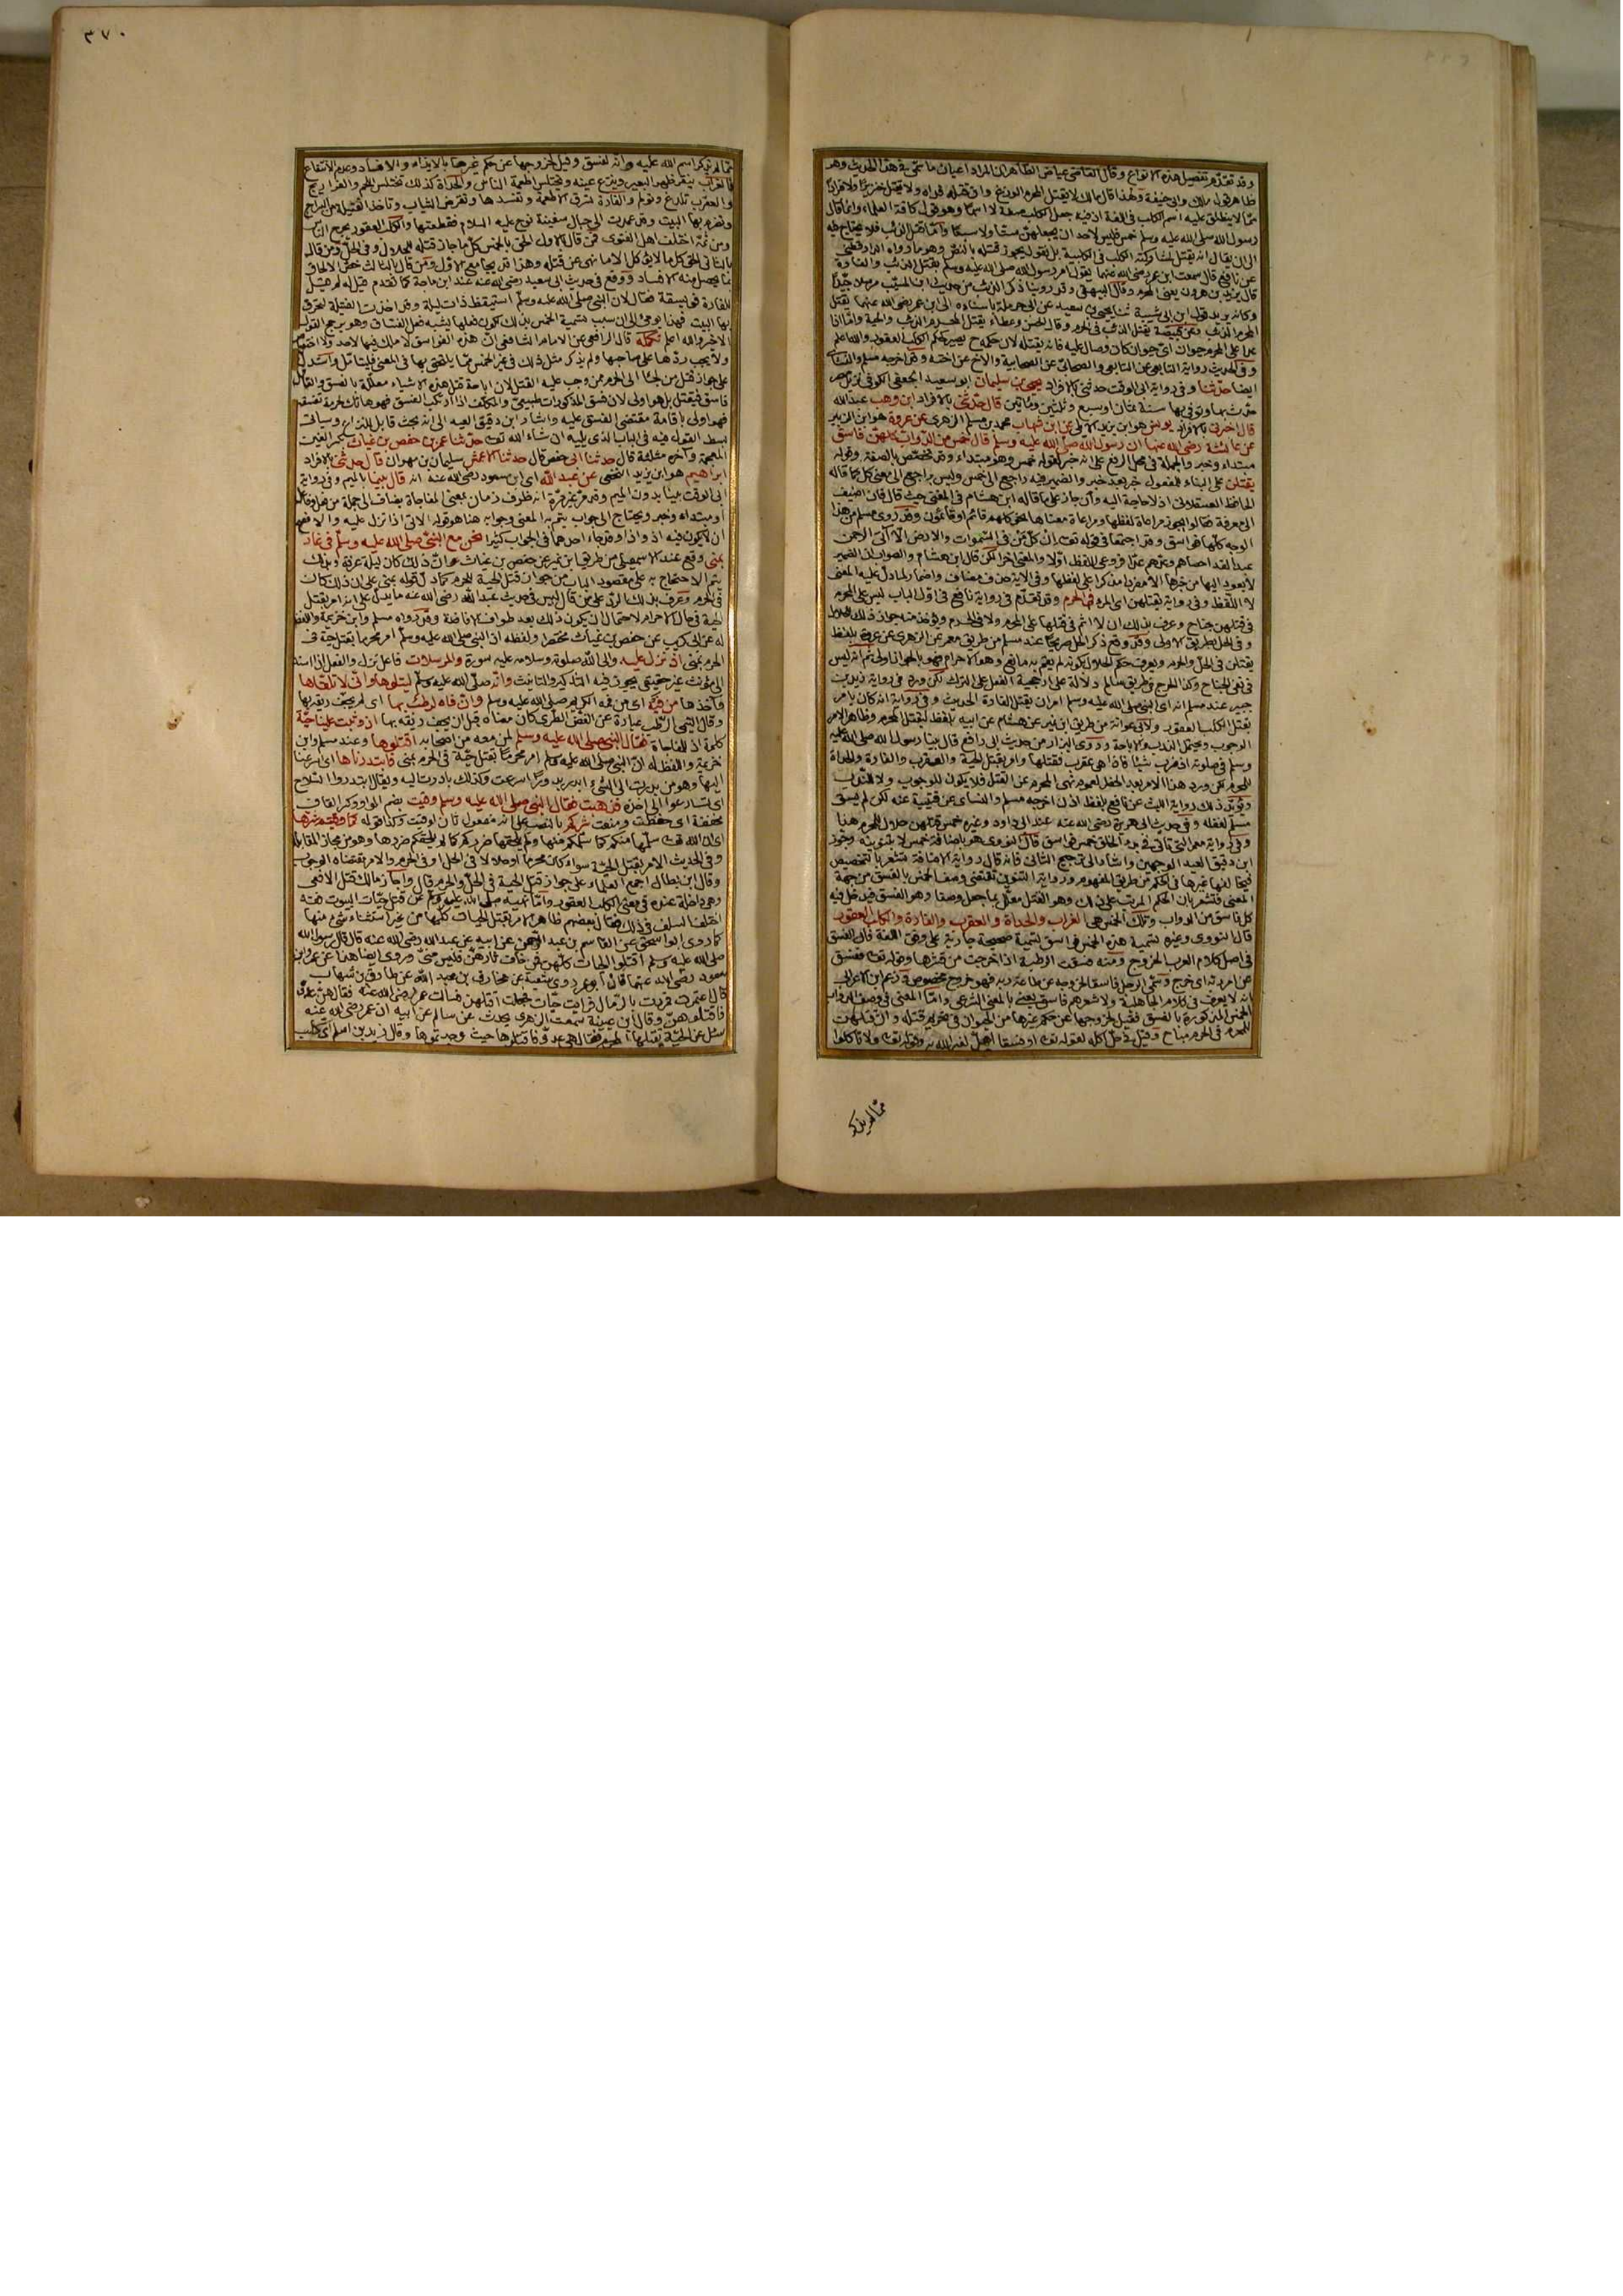 وقد تقدم تفصيل هذه الانواع وقال القاضي عياض الظاهر ان المراد اعيان ما سمي في هذا الحديث وهو
ظاهر قول مالك وابي حنيفة ولهذا قال مالك لا يقتل المحرم الوزغ وان قتله فداه ولا يقتل خنزيرا ولا قردا
مما لا ينطلق عليه اسم الكلب في اللغة اذ فيه جعل الكلب صفة لا اسما وهو قول كافة العلماء وانما قال
رسول الله صلى الله عليه وسلم خمس فليس لاحد ان يجعلهن ستا ولا سبعا واما قتل الذئب فلا يحتاج فيه
الى ان يقال انه يقتل لمشاركته الكلب في الكلبية بل نقول يجوز قتله بالنص وهو ما رواه الدارقطني
عن نافع قال سمعت ابن عمر رضي الله عنهما يقول امر رسول الله صلى الله عليه وسلم بقتل الذئب والفارة
قال يزيد بن هرون يعني المحرم وقال البيهقي وقد روينا ذكر الذئب من حديث ابن المسيب مرسلا جيدا
وكانه يريد قول ابن ابي شيبة ثنا يحيى بن سعيد عن ابن حرملة
المحرم الذئب وعن قبيصة يقتل الذئب في الحرم وقال الحسن وعطاء يقتل المحرم الذئب والحية واما اذا
عدا على المحرم حيوان اي حيوان كان وصال عليه فانه يقتله لان حكمه ح يصير كحكم الكلب العقور والله اعلم
وفي الحديث رواية التابعي عن التابعي والصحابي عن الصحابية والاخ عن اخته وقد اخرجه مسلم والنسائي
ايضا حدثنا وفي رواية ابي الوقت حدثني بالافراد يحيى بن سليمان ابو سعيد الجعفي الكوفي نزيل مصر
حدث بها وتوفي بها سنة ثمان او سبع وثلثين ومائتين قال حدثني بالافراد ابن وهب عبد الله
قال اخبرني بالافراد يونس هو ابن يزيد الايلي عن ابن شهاب محمد بن مسلم الزهري عن عروة هو ابن الزبير
عن عائشة رضي الله عنها ان رسول الله صلى الله عليه وسلم قال خمس من الدواب كلهن فاسق
مبتداء وخبر والجملة في محل الرفع على انه خبر لقوله خمس وهو مبتداء وقد تخصص بالصفة وقوله
يقتلن على البناء للمفعول خبر بعد خبر والضمير فيه راجع الى خمس وليس براجع الى معنى كل كما قاله
الحافظ العسقلاني اذ لا حاجة اليه وان جاز على ما قاله ابن هشام في المغني حيث قال فان اضيف
الى معرفة فقالوا يجوز مراعاة لفظها ومراعاة معناها نحو كلهم قائم او قائمون وقد روى مسلم من هذا
الوجه كلها فواسق وقد اجتمعا في قوله تعالى ان كل من في السموات والارض الا آتي الرحمن
عبدا لقد احصاهم وعدهم عدا فروعي اللفظ اولا والمعنى اخرا لكن قال ابن هشام والصواب ان الضمير
لا يعود اليها من خبرها الا مفردا مذكرا على لفظها وفي الاية حذف مضاف واضمار لما دل عليه المعنى
لا اللفظ وفي رواية يقتلهن اي المرء في الحرم وقد تقدم في رواية نافع في اول الباب ليس على المحرم
في قتلهن جناح وعرف بذلك ان لا اثم في قتلها على المحرم ولا في الحرم ويؤخذ منه جواز ذلك للحلال
وفي الحل بطريق الاولى وقد وقع ذكر الحل صريحا عند مسلم من طريق معمر عن الزهري عن عروة بلفظ
يقتلن في الحل والحرم ويعرف حكم الحلال بكونه لم يقم به مانع وهو الاحرام فهو بالجواز اولى ثم انه ليس
في نفي الجناح وكذا الحرج في طريق سالم دلالة على ارجحية الفعل على الترك لكن ورد في رواية زيد بن
جبير عند مسلم انه اي النبي صلى الله عليه وسلم امر ان يقتل الفارة الحديث وفي رواية انه كان يامر
بقتل الكلب العقور ولابي عوانة من طريق ابن نمير عن هشام عن ابيه بلفظ ليقتل المحرم وظاهر الامر
الوجوب ويحتمل الندب والاباحة وروى البزار من حديث ابي رافع قال بينا رسول الله صلى الله عليه
وسلم في صلوته اذ ضرب شيئا فاذا هي عقرب فقتلها وامر بقتل الحية والعقرب والفارة والحداة
للمحرم لكن ورد هذا الامر بعد الحظر لعموم نهي المحرم عن القتل فلا يكون للوجوب ولا للندب
ويؤيد ذلك رواية الليث عن نافع بلفظ اذن اخرجه مسلم والنسائي عن قتيبة عنه لكن لم يسق
مسلم لفظه وفي حديث ابي هريرة رضي الله عنه عند ابي داود وغيره خمس قتلهن حلال للمحرم هذا
وفي رواية معمر التي تاتي في بدء الخلق خمس فواسق قال النووي هو باضافة خمس لا بتنوينه وجوز
ابن دقيق العيد الوجهين واشار الى ترجيح الثاني فانه قال رواية الاضافة تشعر بالتخصيص
فيخالفها غيرها في الحكم من طريق المفهوم ورواية التنوين تقتضي وصف الخمس بالفسق من جهة
المعنى فتشعر بان الحكم المرتب على ذلك وهو القتل معلل بما جعل وصفا وهو الفسق فيدخل فيه
كل فاسق من الدواب وتلك الخمس هي الغراب والحداة والعقرب والفارة والكلب العقور
قال النووي وغيره تسمية هذه الخمس فواسق تسمية صحيحة جارية على وفق اللغة فان الفسق
في اصل كلام العرب الخروج ومنه فسقت الرطبة اذا خرجت من قشرها وقوله تعالى ففسق
عن امر ربه اي خرج وسمي الرجل فاسقا لخروجه عن طاعة ربه فهو خروج مخصوص وزعم ابن الاعرابي
انه لا يعرف في كلام الجاهلية ولا شعرهم فاسق يعني بالمعنى الشرعي واما المعنى في وصف الدواب
الخمس المذكورة بالفسق فقيل لخروجها عن حكم غيرها من الحيوان في تحريم قتله
للمحرم في الحرم مباح وقيل في حل اكله لقوله تعالى او فسقا اهل لغير الله به وقوله تعالى ولا تاكلوا
مما لم يذكر
٣٧٠
مما لم يذكر اسم الله عليه وانه لفسق وقيل لخروجها عن حكم غيرها بالايذاء والافساد وعدم الانتفاع
فالغراب ينقر ظهر البعير وينزع عينه ويختلس اطعمة الناس والحداة كذلك تختلس اللحم والفراريج
والعقرب تلدغ وتولم والفارة تسرق الاطعمة وتفسدها وتقرض الثياب وتاخذ الفتيلة من السراج
وتضرم بها البيت وقد عمدت الى حبال سفينة نوح عليه السلام فقطعتها والكلب العقور يجرح الناس
ومن ثمة اختلف اهل الفتوى فمن قال بالاول الحق بالخمس كل ما جاز قتله للحلال وفي الحل ومن قال
بالثاني الحق كل ما لا يؤكل الا ما نهي عن قتله وهذا قد يجامع الاول ومن قال بالثالث خص الالحاق
بما يحصل منه الافساد ووقع في حديث ابي سعيد رضي الله عنه عند ابن ماجة كما تقدم قيل له لم قيل
للفارة فويسقة فقال لان النبي صلى الله عليه وسلم استيقظ ذات ليلة وقد اخذت الفتيلة لتحرق
بها البيت فهذا يومي الى ان سبب تسمية الخمس بذلك كون فعلها يشبه فعل الفساق وهو يرجح القول
الاخير والله اعلم تكملة قال الرافعي عن الامام الشافعي ان هذه الفواسق لا ملك فيها لاحد ولا اختصاص
ولا يجب ردها على صاحبها ولم يذكر مثل ذلك في غير الخمس مما يلتحق بها في المعنى فليتامل واستدل
على جواز قتل من لجا الى الحرم ممن وجب عليه القتل لان اباحة قتل هذه الاشياء معللة بالفسق والقاتل
فاسق فيقتل بل هو اولى لان فسق المذكورات طبيعي والمكلف اذا ارتكب الفسق فهو هاتك لحرمة نفسه
فهو اولى باقامة مقتضى الفسق عليه واشار ابن دقيق العيد الى انه بحث قابل للنزاع وسياتي
بسط القول فيه في الباب الذي يليه ان شاء الله تعالى حدثنا عمر بن حفص بن غياث بكسر الغين
المعجمة وآخره مثلثة قال حدثنا ابي حفص قال حدثنا الاعمش سليمان بن مهران قال حدثني بالافراد
ابراهيم هو ابن يزيد النخعي عن عبد الله اي ابن مسعود رضي الله عنه انه قال بينما بالميم وفي رواية
ابي الوقت بينا بدون الميم وقد مر غير مرة انه ظرف زمان بمعنى المفاجاة يضاف الى جملة من فعل وفاعل
او مبتداء وخبر ويحتاج الى جواب يتم به المعنى وجوابه هنا هو قوله الاتي اذ نزل عليه والافصح
ان لا يكون فيه اذ واذا وقد جاء احدهما في الجواب كثيرا نحن مع النبي صلى الله عليه وسلم في غار
بمنى وقع عند الاسمعيلي من طريق ابن نمير عن حفص بن غياث ان ذلك كان ليلة عرفة وبذلك
يتم الاحتجاج به على مقصود الباب من جواز قتل الحية للمحرم كما دل قوله بمنى على ان ذلك كان
في الحرم وعرف بذلك الرد على من قال ليس في حديث عبد الله رضي الله عنه ما يدل على انه امر بقتل
الحية في حال الاحرام لاحتمال ان يكون ذلك بعد طواف الافاضة وقد رواه مسلم وابن خزيمة واللفظ
له عن ابي كريب عن حفص بن غياث مختصرا ولفظه ان النبي صلى الله عليه وسلم امر محرما بقتل حية في
الحرم بمنى اذ نزل عليه والى الله صلوته وسلامه عليه سورة والمرسلات فاعل نزل والفعل اذا اسند
الى مؤنث غير حقيقي يجوز فيه التذكير والتانيث وانه صلى الله عليه وسلم ليتلوها واني لاتلقاها
وآخذها من فيه اي من فمه الكريم صلى الله عليه وسلم وان فاه لرطب بها اي لم يجف ريقه بها
وقال التيمي الرطب عبارة عن الغض الطري كان معناه قبل ان يجف ريقه بها اذ وثبت علينا حية
كلمة اذ للمفاجاة فقال النبي صلى الله عليه وسلم لمن معه من اصحابه اقتلوها وعند مسلم وابن
خزيمة واللفظ له ان النبي صلى الله عليه وسلم امر محرما بقتل حية في الحرم بمنى فابتدرناها اي اسرعنا
اليها وهو من بدرت الى الشيء ابدر بدورا اسرعت وكذلك بادرت اليه ويقال ابتدروا السلاح
اي تسارعوا الى اخذه فذهبت فقال النبي صلى الله عليه وسلم وقيت بضم الواو وكسر القاف
مخففة اي حفظت ومنعت شركم بالنصب على انه مفعول ثان لوقيت وكذا قوله كما وقيتم شرها
اي ان الله تعالى سلمها منكم كما سلمكم منها ولم يلحقها ضرركم كما لم يلحقكم ضررها وهو من مجاز المقابلة
وفي الحديث الامر بقتل الحية سواء كان محرما او حلالا في الحل او في الحرم والامر مقتضاه الوجوب
وقال ابن بطال اجمع العلماء على جواز قتل الحية في الحل والحرم قال واجاز مالك قتل الافعى
وهي داخلة عنده في معنى الكلب العقور واما نهيه صلى الله عليه وسلم عن قتل حيات البيوت فقد
اختلف السلف في ذلك فقال بعضهم ظاهر الامر بقتل الحيات كلها من غير استثناء شيء منها
كما روى ابو اسحق عن القاسم بن عبد الرحمن عن ابيه عن عبد الله رضي الله عنه قال قال رسول الله
صلى الله عليه وسلم اقتلوا الحيات كلهن فمن خاف ثارهن فليس مني وروي ايضا هذا عن عمر وابن
مسعود رضي الله عنهما قال ابو عمر روى شعبة عن مخارق بن عبد الله عن طارق بن شهاب
قال اعتمرت فمررت بالرمال فرايت حيات فجعلت اقتلهن فسالت عمر رضي الله عنه فقال هن عدو
فاقتلوهن وقال ابن عيينة سمعت الزهري يحدث عن سالم عن ابيه ان عمر رضي الله عنه
سئل عن الحية يقتلها المحرم فقال هي عدو فاقتلوها حيث وجدتموها وقال زيد بن اسلم اي كلب